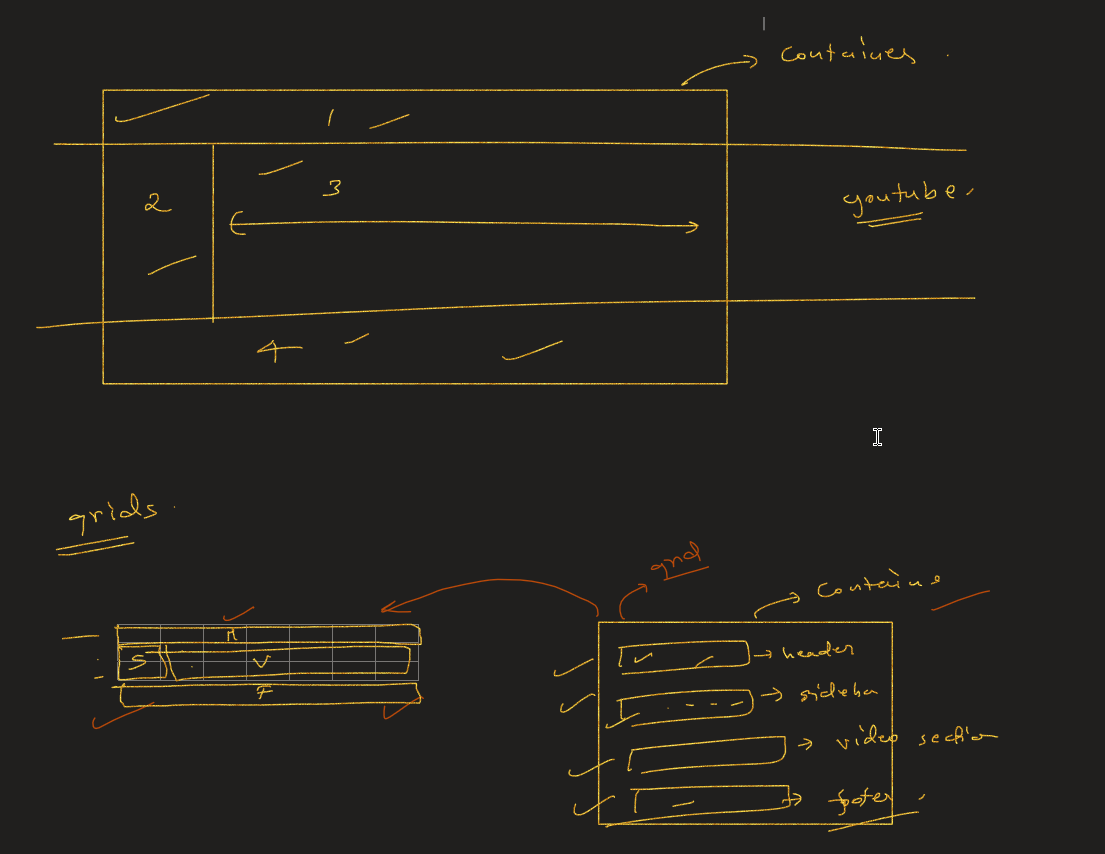 Container
1
3
2
youtube
4
grids
grid
Container
H
S V
F
header
sidebar
video section
footer